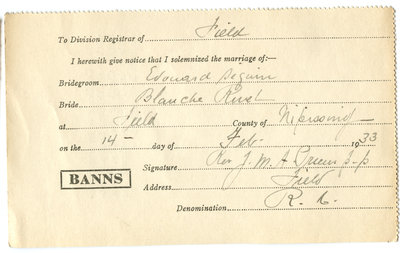 To Division Registrar of Field
I herewith give notice that I solemnized the marriage of:—
Bridegroom Edouard Seguin
Bride Blanche
at Field County of Nipissing
on the 14 day of Feb. 1933
Signature Rev. J. M. A.
BANNS
Address Field
Denomination R. C.